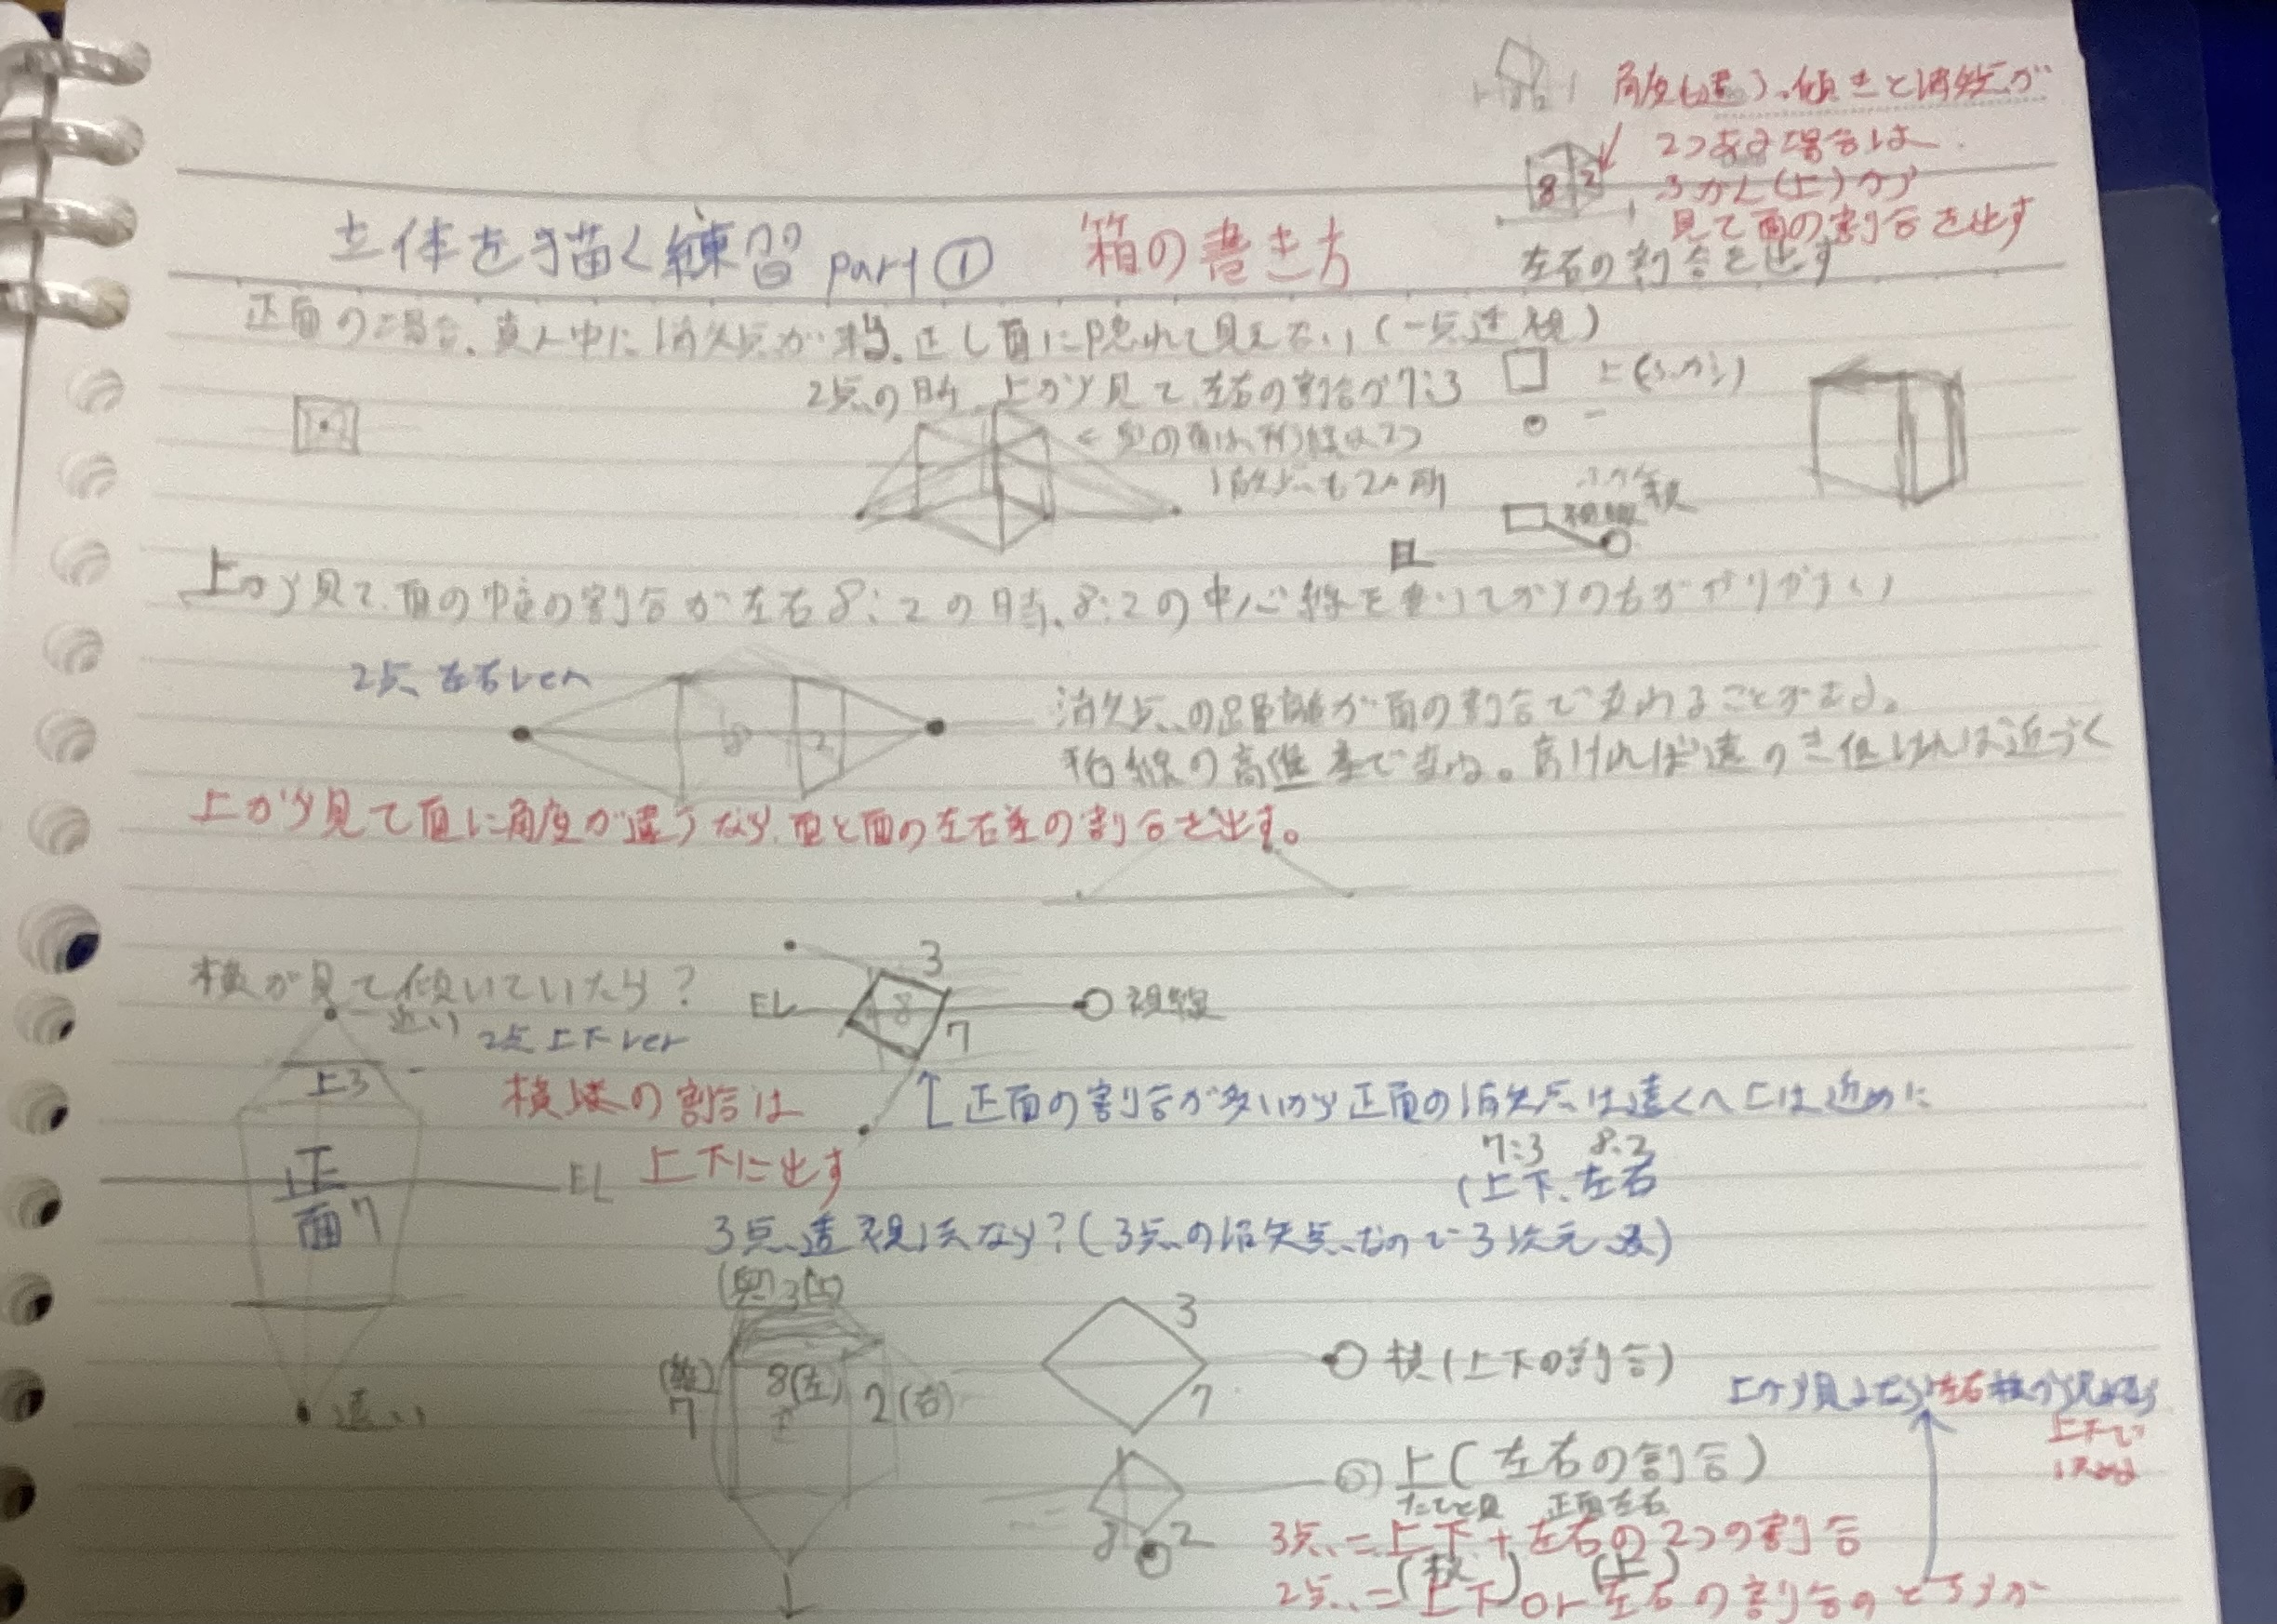 角度も違う、傾きと消失点が
2つある場合は
ふかん(上)から
見て面の割合を出す
8 2
左右の割合を出す
立体を描く練習 part① 箱の書き方
正面の場合、真ん中に消失点が来る、正し面に隠れて見えない(一点透視)
2点の時、上から見て左右の割合が7:3
上(ふかん)
消失点も2ヵ所
EL
上から見て、面の中心の割合が左右8:2の時、8:2の中心線を
2点、左右ver
8 2
消失点の距離が面の割合で変わることがある。
高ければ遠のき低ければ近づく
上から見て面に角度が違うなら、面と面の左右差の割合を出す。
横から見て傾いていたら?
近い
2点上下ver
EL 8 3 7 視線
上3
横の割合は
上下に出す
正面の割合が多いから正面の消失点は遠くへ上は近めに
正面7
EL
7:3 8:2
(上下、左右
3点透視法なら?(3点の消失点なので3次元
遠い
(奥)3(上)
7
8(左)
2(右)
3
7
横(上下の割合)
上から見たなら左右横から見たなら
上下で
8 2
上(左右の割合)
正面左右
3点=上下+左右の2つの割合
(横) (上)
2点=上下or左右の割合のどちらか